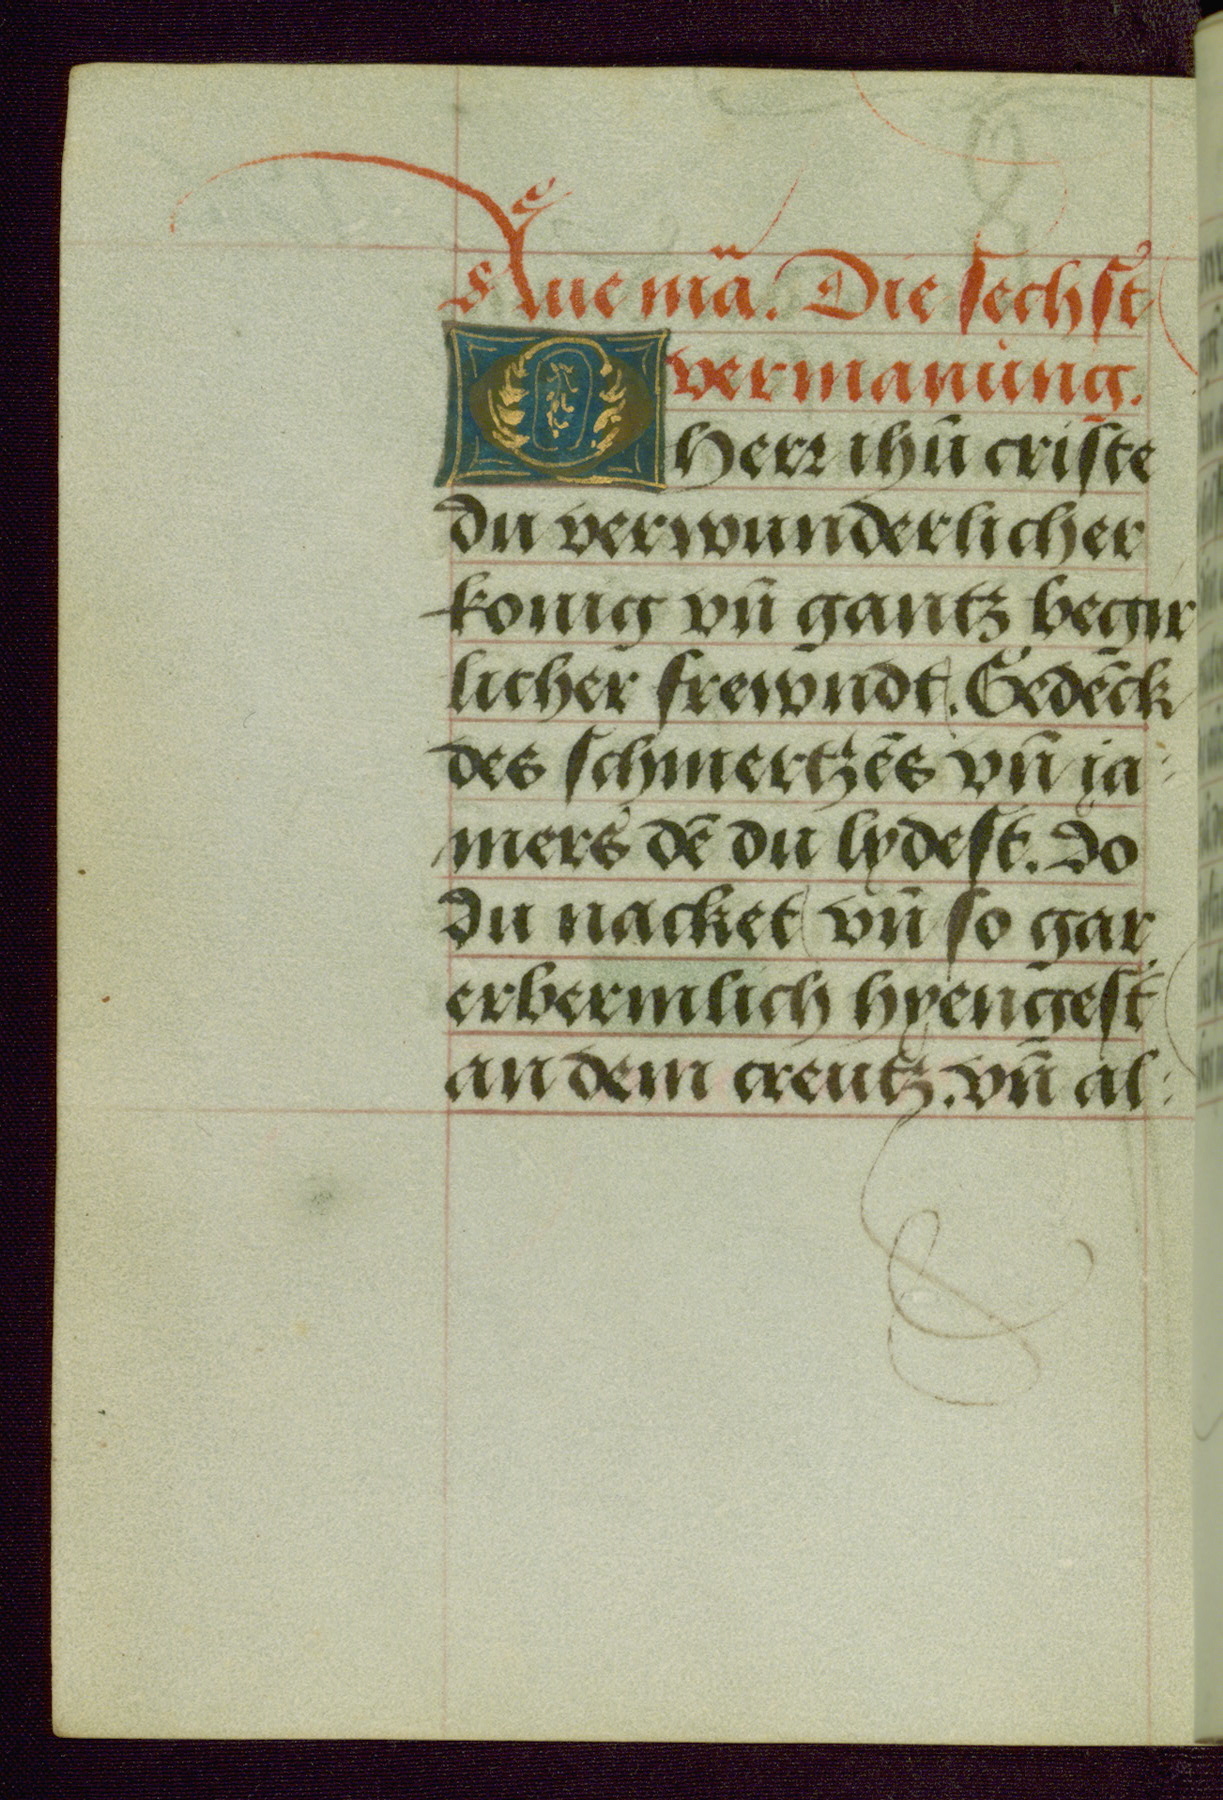 Aue mã. Die sechst
vermanung.
O Herr ihũ criste
du verwunderlicher
konig vñ gantz begir
licher frewndt. Gedẽck
des schmertzẽs vñ ja=
mers dẽ du lydest. Do
du nacket vñ so gar
erbermlich hyengest
an dem creutz. vñ al=